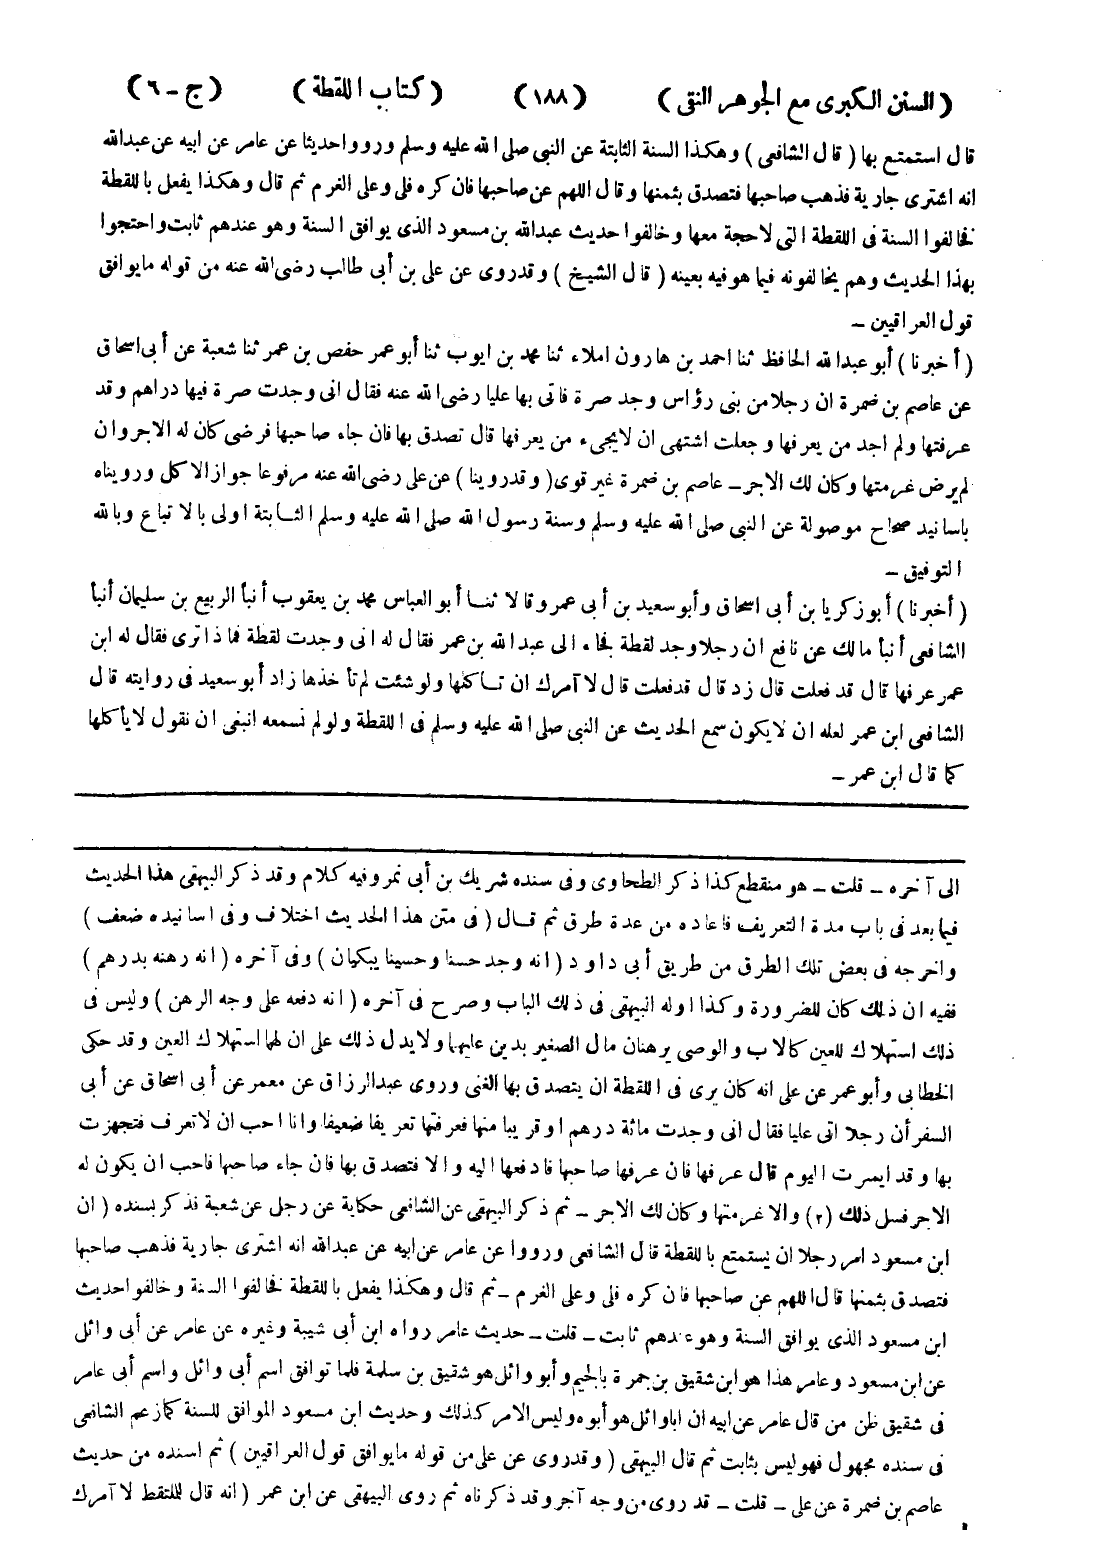 (السنن الكبرى مع الجوهر النقى) (١٨٨) (كتاب اللقطة) (ج - ٦)
قال استمتع بها (قال الشافعى) وهكذا السنة الثابتة عن النبى صلى الله عليه وسلم ورووا حديثا عن عامر عن ابيه عن عبدالله
انه اشترى جارية فذهب صاحبها فتصدق بثمنها وقال اللهم عن صاحبها فان كره فلى وعلى الغرم ثم قال وهكذا يفعل باللقطة
فخالفوا السنة فى اللقطة التى لاحجة معها وخالفوا حديث عبدالله بن مسعود الذى يوافق السنة وهو عندهم ثابت واحتجوا
بهذا الحديث وهم يخالفونه فيما هو فيه بعينه (قال الشيخ) وقد روى عن على بن أبى طالب رضى الله عنه من قوله مايوافق
قول العراقيين -
(أخبرنا) أبو عبدالله الحافظ ثنا احمد بن هارون املاء ثنا محمد بن ايوب ثنا أبو عمر حفص بن عمر ثنا شعبة عن أبى اسحاق
عن عاصم بن ضمرة ان رجلا من بنى رؤاس وجد صرة فاتى بها عليا رضى الله عنه فقال انى وجدت صرة فيها دراهم وقد
عرفتها ولم اجد من يعرفها وجعلت اشتهى ان لايجىء من يعرفها قال تصدق بها فان جاء صاحبها فرضى كان له الاجر وان
لم يرض غرمتها وكان لك الاجر - عاصم بن ضمرة غير قوى (وقد روينا) عن على رضى الله عنه مرفوعا جواز الاكل ورويناه
باسانيد صحاح موصولة عن النبى صلى الله عليه وسلم وسنة رسول الله صلى الله عليه وسلم الثابتة اولى بالاتباع وبالله
التوفيق -
(أخبرنا) أبو زكريا بن أبى اسحاق وأبو سعيد بن أبى عمرو قالا ثنا أبو العباس محمد بن يعقوب أنبأ الربيع بن سليمان أنبأ
الشافعى أنبأ مالك عن نافع ان رجلا وجد لقطة فجاء الى عبد الله بن عمر فقال له انى وجدت لقطة فما ذا ترى فقال له ابن
عمر عرفها قال قد فعلت قال زد قال قد فعلت قال لا آمرك ان تأكلها ولو شئت لم تأخذها زاد أبو سعيد فى روايته قال
الشافعى ابن عمر لعله ان لايكون سمع الحديث عن النبى صلى الله عليه وسلم فى اللقطة ولو لم نسمعه انبغى ان نقول لايأكلها
كما قال ابن عمر -
الى آخره - قلت - هو منقطع كذا ذكر الطحاوى وفى سنده شريك بن أبى نمر وفيه كلام وقد ذكر البيهقى هذا الحديث
فيما بعد فى باب مدة التعريف فاعاده من عدة طرق ثم قال (فى متن هذا الحديث اختلاف وفى اسانيده ضعف)
واخرجه فى بعض تلك الطرق من طريق أبى داود (انه وجد حسنا وحسينا يبكيان) وفى آخره (انه رهنه بدرهم)
ففيه ان ذلك كان للضرورة وكذا اوله البيهقى فى ذلك الباب وصرح فى آخره (انه دفعه على وجه الرهن) وليس فى
ذلك استهلاك للعين كالاب والوصى يرهنان مال الصغير بدين عليهما ولايدل ذلك على ان لهما استهلاك العين وقد حكى
الخطابى وأبو عمر عن على انه كان يرى فى اللقطة ان يتصدق بها الغنى وروى عبدالرزاق عن معمر عن أبى اسحاق عن أبى
السفر أن رجلا اتى عليا فقال انى وجدت مائة درهم او قريبا منها فعرفتها تعريفا ضعيفا وانا احب ان لا تعرف فتجهزت
بها وقد ايسرت اليوم قال عرفها فان عرفها صاحبها فادفعها اليه والا فتصدق بها فان جاء صاحبها فاحب ان يكون له
الاجر فسل ذلك (٢) والا غرمتها وكان لك الاجر - ثم ذكر البيهقى عن الشافعى حكاية عن رجل عن شعبة فذكر بسنده (ان
ابن مسعود امر رجلا ان يستمتع باللقطة قال الشافعى ورووا عن عامر عن ابيه عن عبدالله انه اشترى جارية فذهب صاحبها
فتصدق بثمنها قال اللهم عن صاحبها فان كره فلى وعلى الغرم - ثم قال وهكذا يفعل باللقطة فخالفوا السنة وخالفوا حديث
ابن مسعود الذى يوافق السنة وهو عندهم ثابت - قلت - حديث عامر رواه ابن أبى شيبة وغيره عن عامر عن أبى وائل
عن ابن مسعود وعامر هذا هو ابن شقيق بن جمرة بالجيم وأبو وائل هو شقيق بن سلمة فلما توافق اسم أبى وائل واسم أبى عامر
فى شقيق ظن من قال عامر عن ابيه ان اباوائل هو أبوه وليس الامر كذلك وحديث ابن مسعود الموافق للسنة كما زعم الشافعى
فى سنده مجهول فهو ليس بثابت ثم قال البيهقى (وقد روى عن على من قوله مايوافق قول العراقيين) ثم اسنده من حديث
عاصم بن ضمرة عن على - قلت - قد روى من وجه آخر وقد ذكرناه ثم روى البيهقى عن ابن عمر (انه قال للملتقط لا آمرك